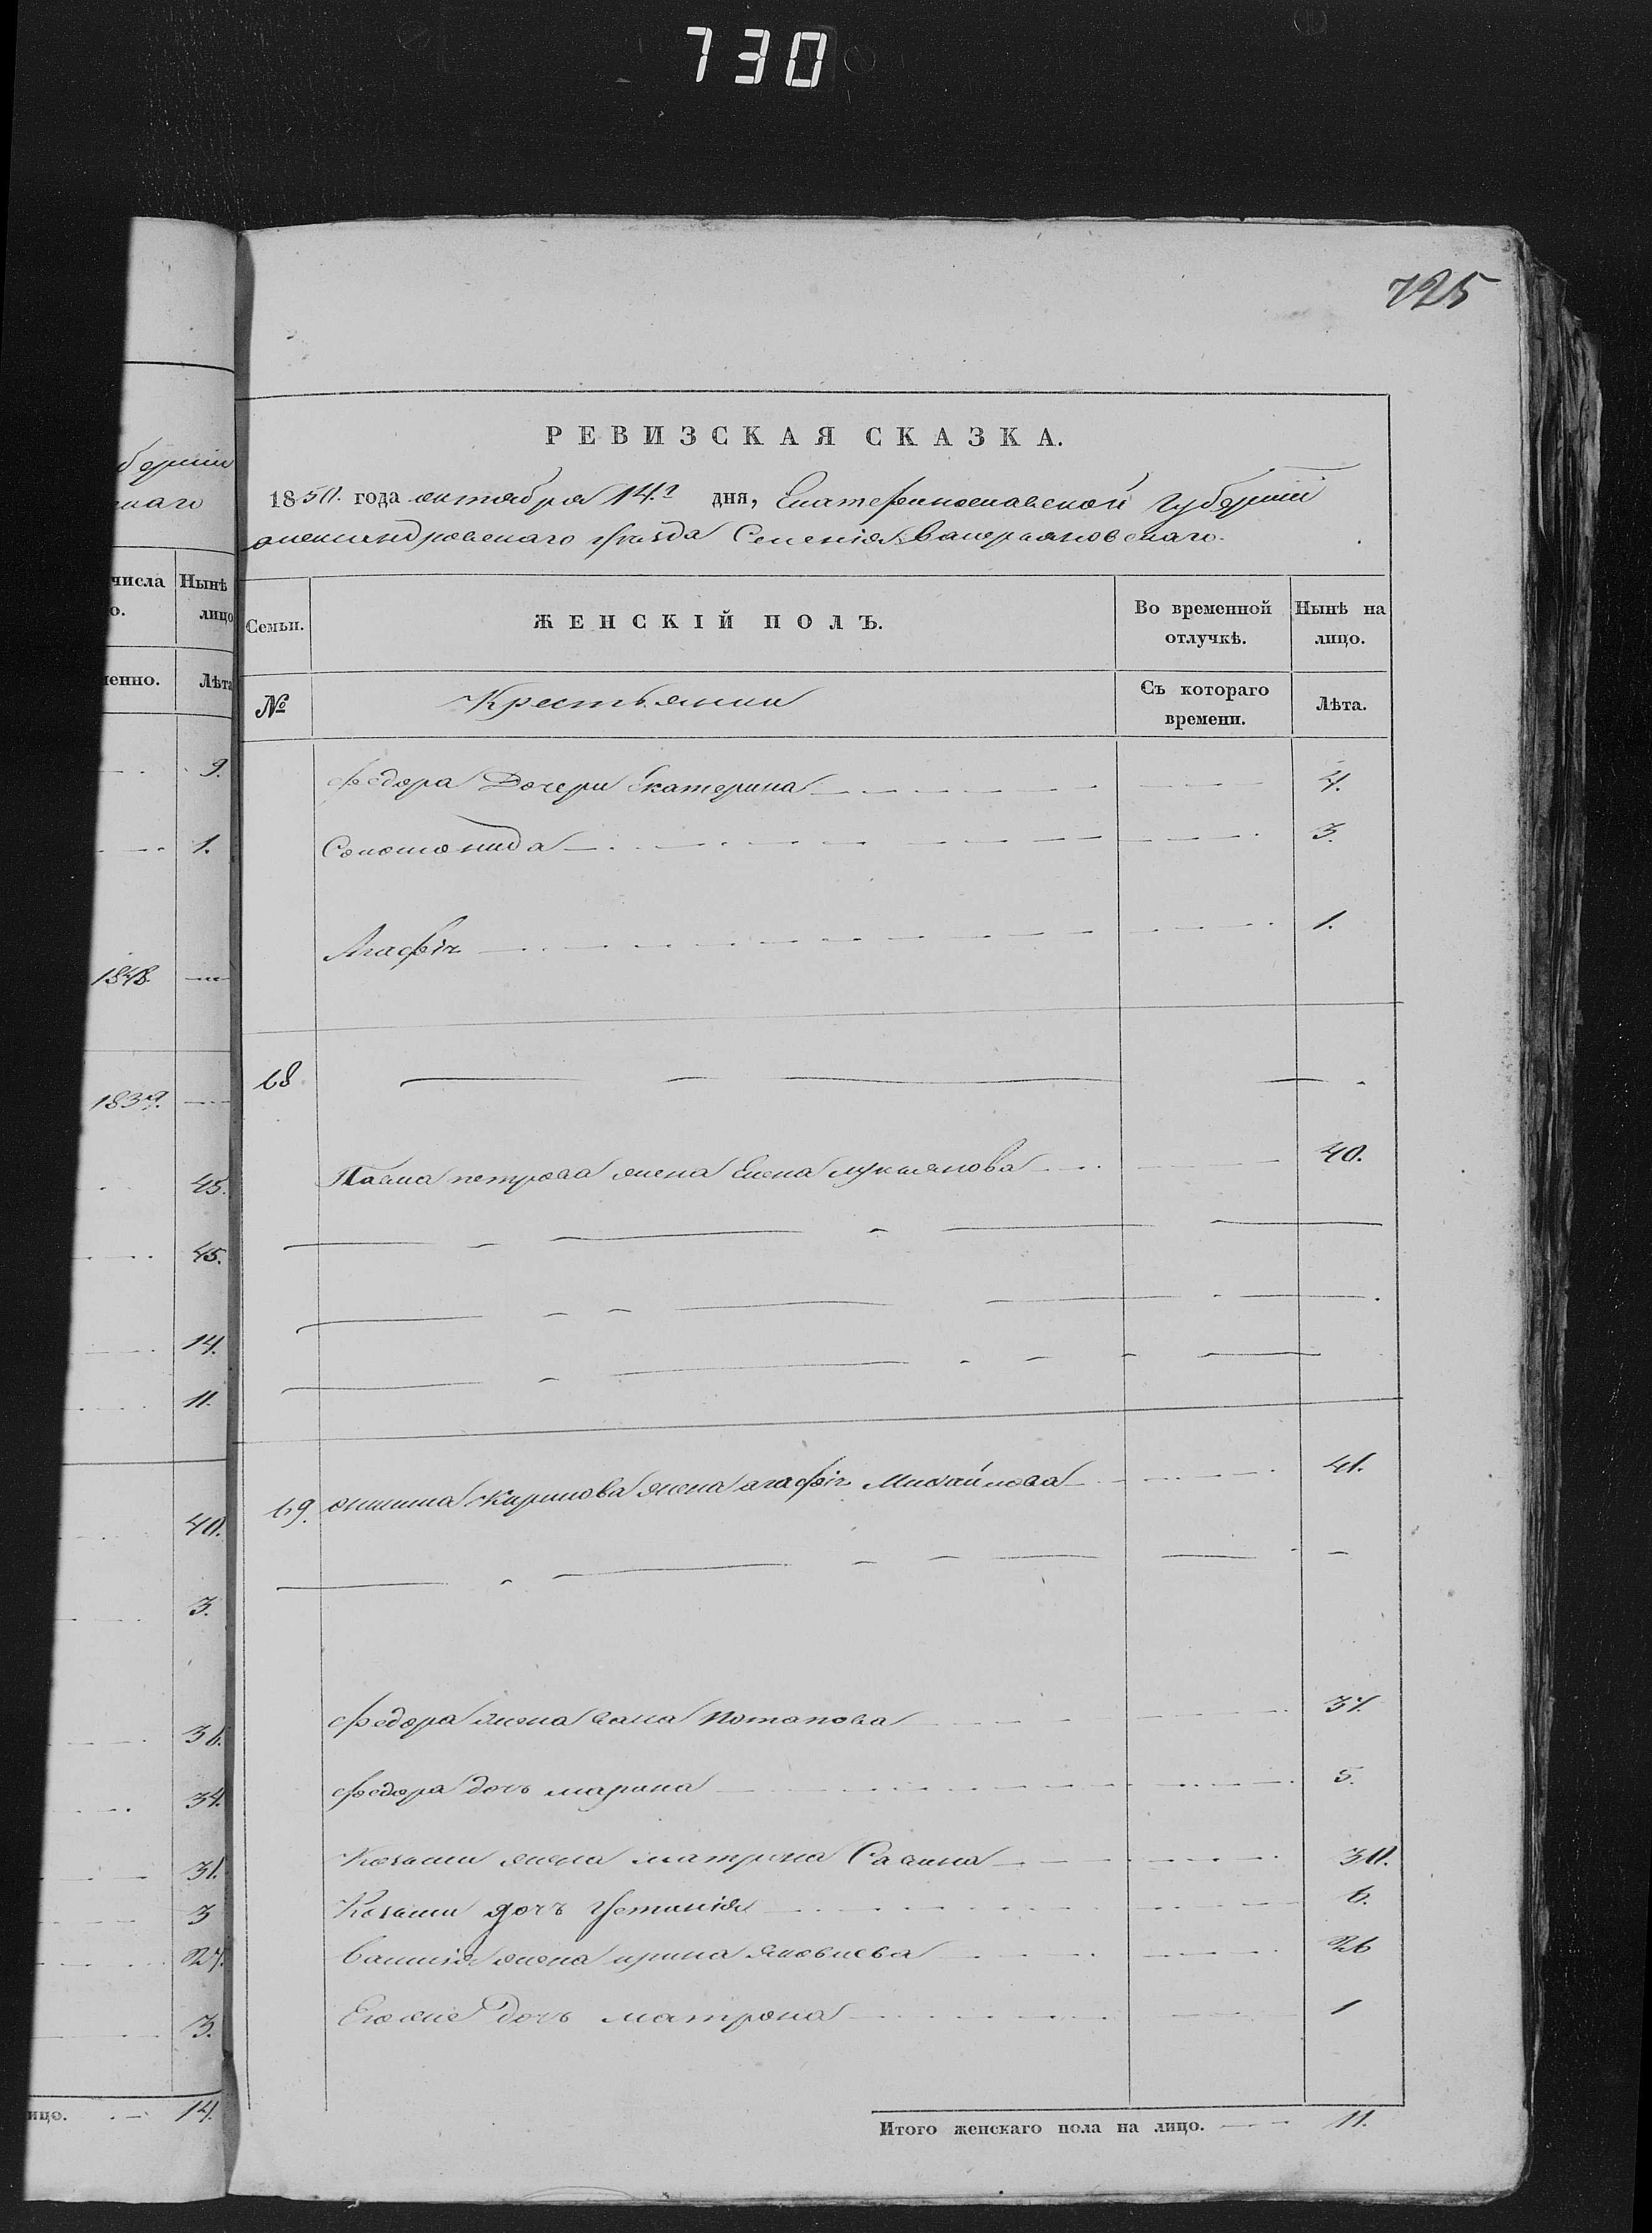 730
725
РЕВИЗСКАЯ СКАЗКА.
1850. года октября 14.го дня, Екатеринославской губерніи
александровскаго уѣзда Селенія Валерьяновскаго.
Семьи.
ЖЕНСКІЙ ПОЛЪ.
Во временной отлучкѣ.
Нынѣ на лицо.
№
Крестьянии
Съ котораго времени.
Лѣта.
федора Дочери Екатерина 4.
Соломонида 3.
Агафія 1.
68
Павла петрова жена Елена лукьянова 40.
69. Кирилова жена агафія Михайлова 41.
федора жена Потапова 37.
федора дочь марина 5.
жена матрона Савина 30.
дочь Устинія 6.
Василія жена ирина Яковлева 26
Егоже дочь матрона 1
Итого женскаго пола на лицо. 11.
берніи
скаго
числа
о.
Нынѣ
лицо
менно.
Лѣта
9.
1.
1848.
1839.
45.
45.
14.
11.
40.
3.
36.
34.
31.
3
27.
3.
ицо. 14.